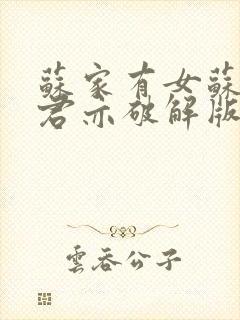 蘇家有女蘇
君亦破解版
雲吞公子